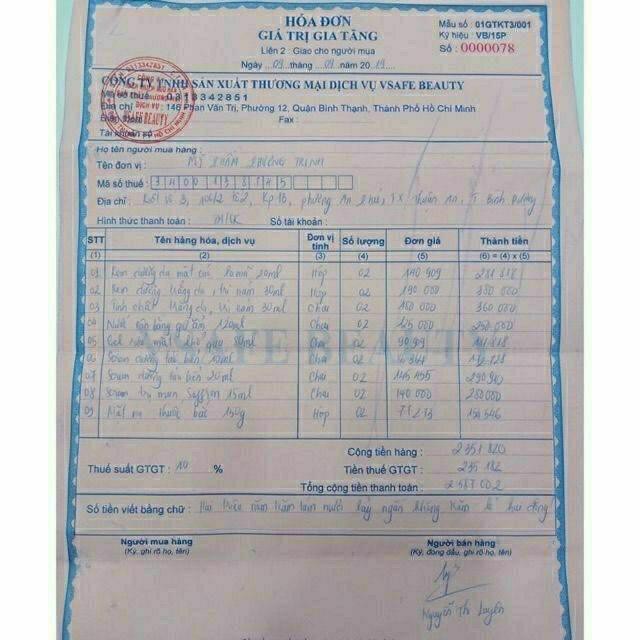 HÓA ĐƠN
GIÁ TRỊ GIA TĂNG
Liên 2 : Giao cho người mua
Ngày 09 tháng 09 năm 2019
Mẫu số : 01GTKT3/001
Ký hiệu : VB/15P
Số : 0000078
CÔNG TY TNHH SẢN XUẤT THƯƠNG MẠI DỊCH VỤ VSAFE BEAUTY
Mã số thuế : 0313342851
Địa chỉ : 146 Phan Văn Trị, Phường 12, Quận Bình Thạnh, Thành Phố Hồ Chí Minh
Điện thoại : Fax :
Tài khoản số :
Họ tên người mua hàng :
Tên đơn vị : MỸ PHẨM PHƯƠNG TRINH
Mã số thuế :
Địa chỉ : KP 1B, phường An Phú, TX Thuận An, T Bình Dương
Hình thức thanh toán : TM/CK Số tài khoản :
STT Tên hàng hóa, dịch vụ Đơn vị tính Số lượng Đơn giá Thành tiền
(1) (2) (3) (4) (5) (6) = (4) x (5)
01 Kem dưỡng da mặt 20ml Hộp 02 140 909 281 818
02 Kem dưỡng trắng da, trị nám 30ml Hộp 02 190 000 380 000
03 Tinh chất trắng da, trị nám 30ml Chai 02 180 000 360 000
04 Nước hoa hồng 120ml Chai 02 125 000 250 000
05 Gel rửa mặt 80ml Chai 02 90 909
06 Serum dưỡng tảo biển 10ml Chai 02
07 Serum dưỡng tảo biển 20ml Chai 02 145 455 290 910
08 Serum trị mụn Saffron 15ml Chai 02 140 000 280 000
09 Mặt nạ thuốc bắc 150g Hộp 02 77 273 154 546
Cộng tiền hàng : 2 351 820
Thuế suất GTGT : 10 % Tiền thuế GTGT : 235 182
Tổng cộng tiền thanh toán : 2 587 002
Số tiền viết bằng chữ : Hai triệu năm trăm tám mươi bảy ngàn không trăm lẻ hai đồng
Người mua hàng Người bán hàng
(Ký, ghi rõ họ, tên) (Ký, đóng dấu, ghi rõ họ, tên)
Nguyễn Thị Luyến